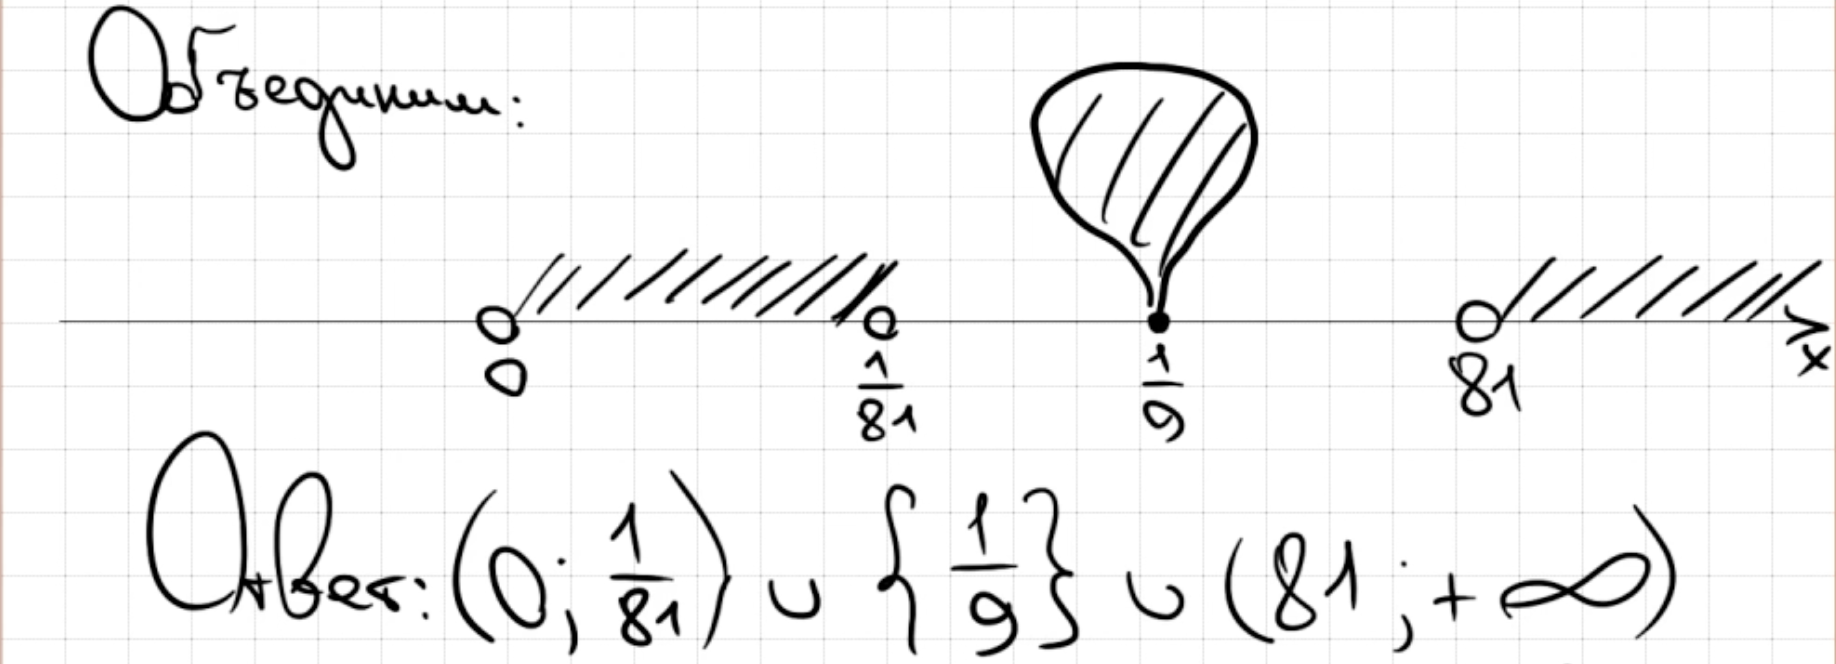 Объединим:
0 1/81 1/9 81 x
Ответ: (0; 1/81) ∪ {1/9} ∪ (81; +∞)